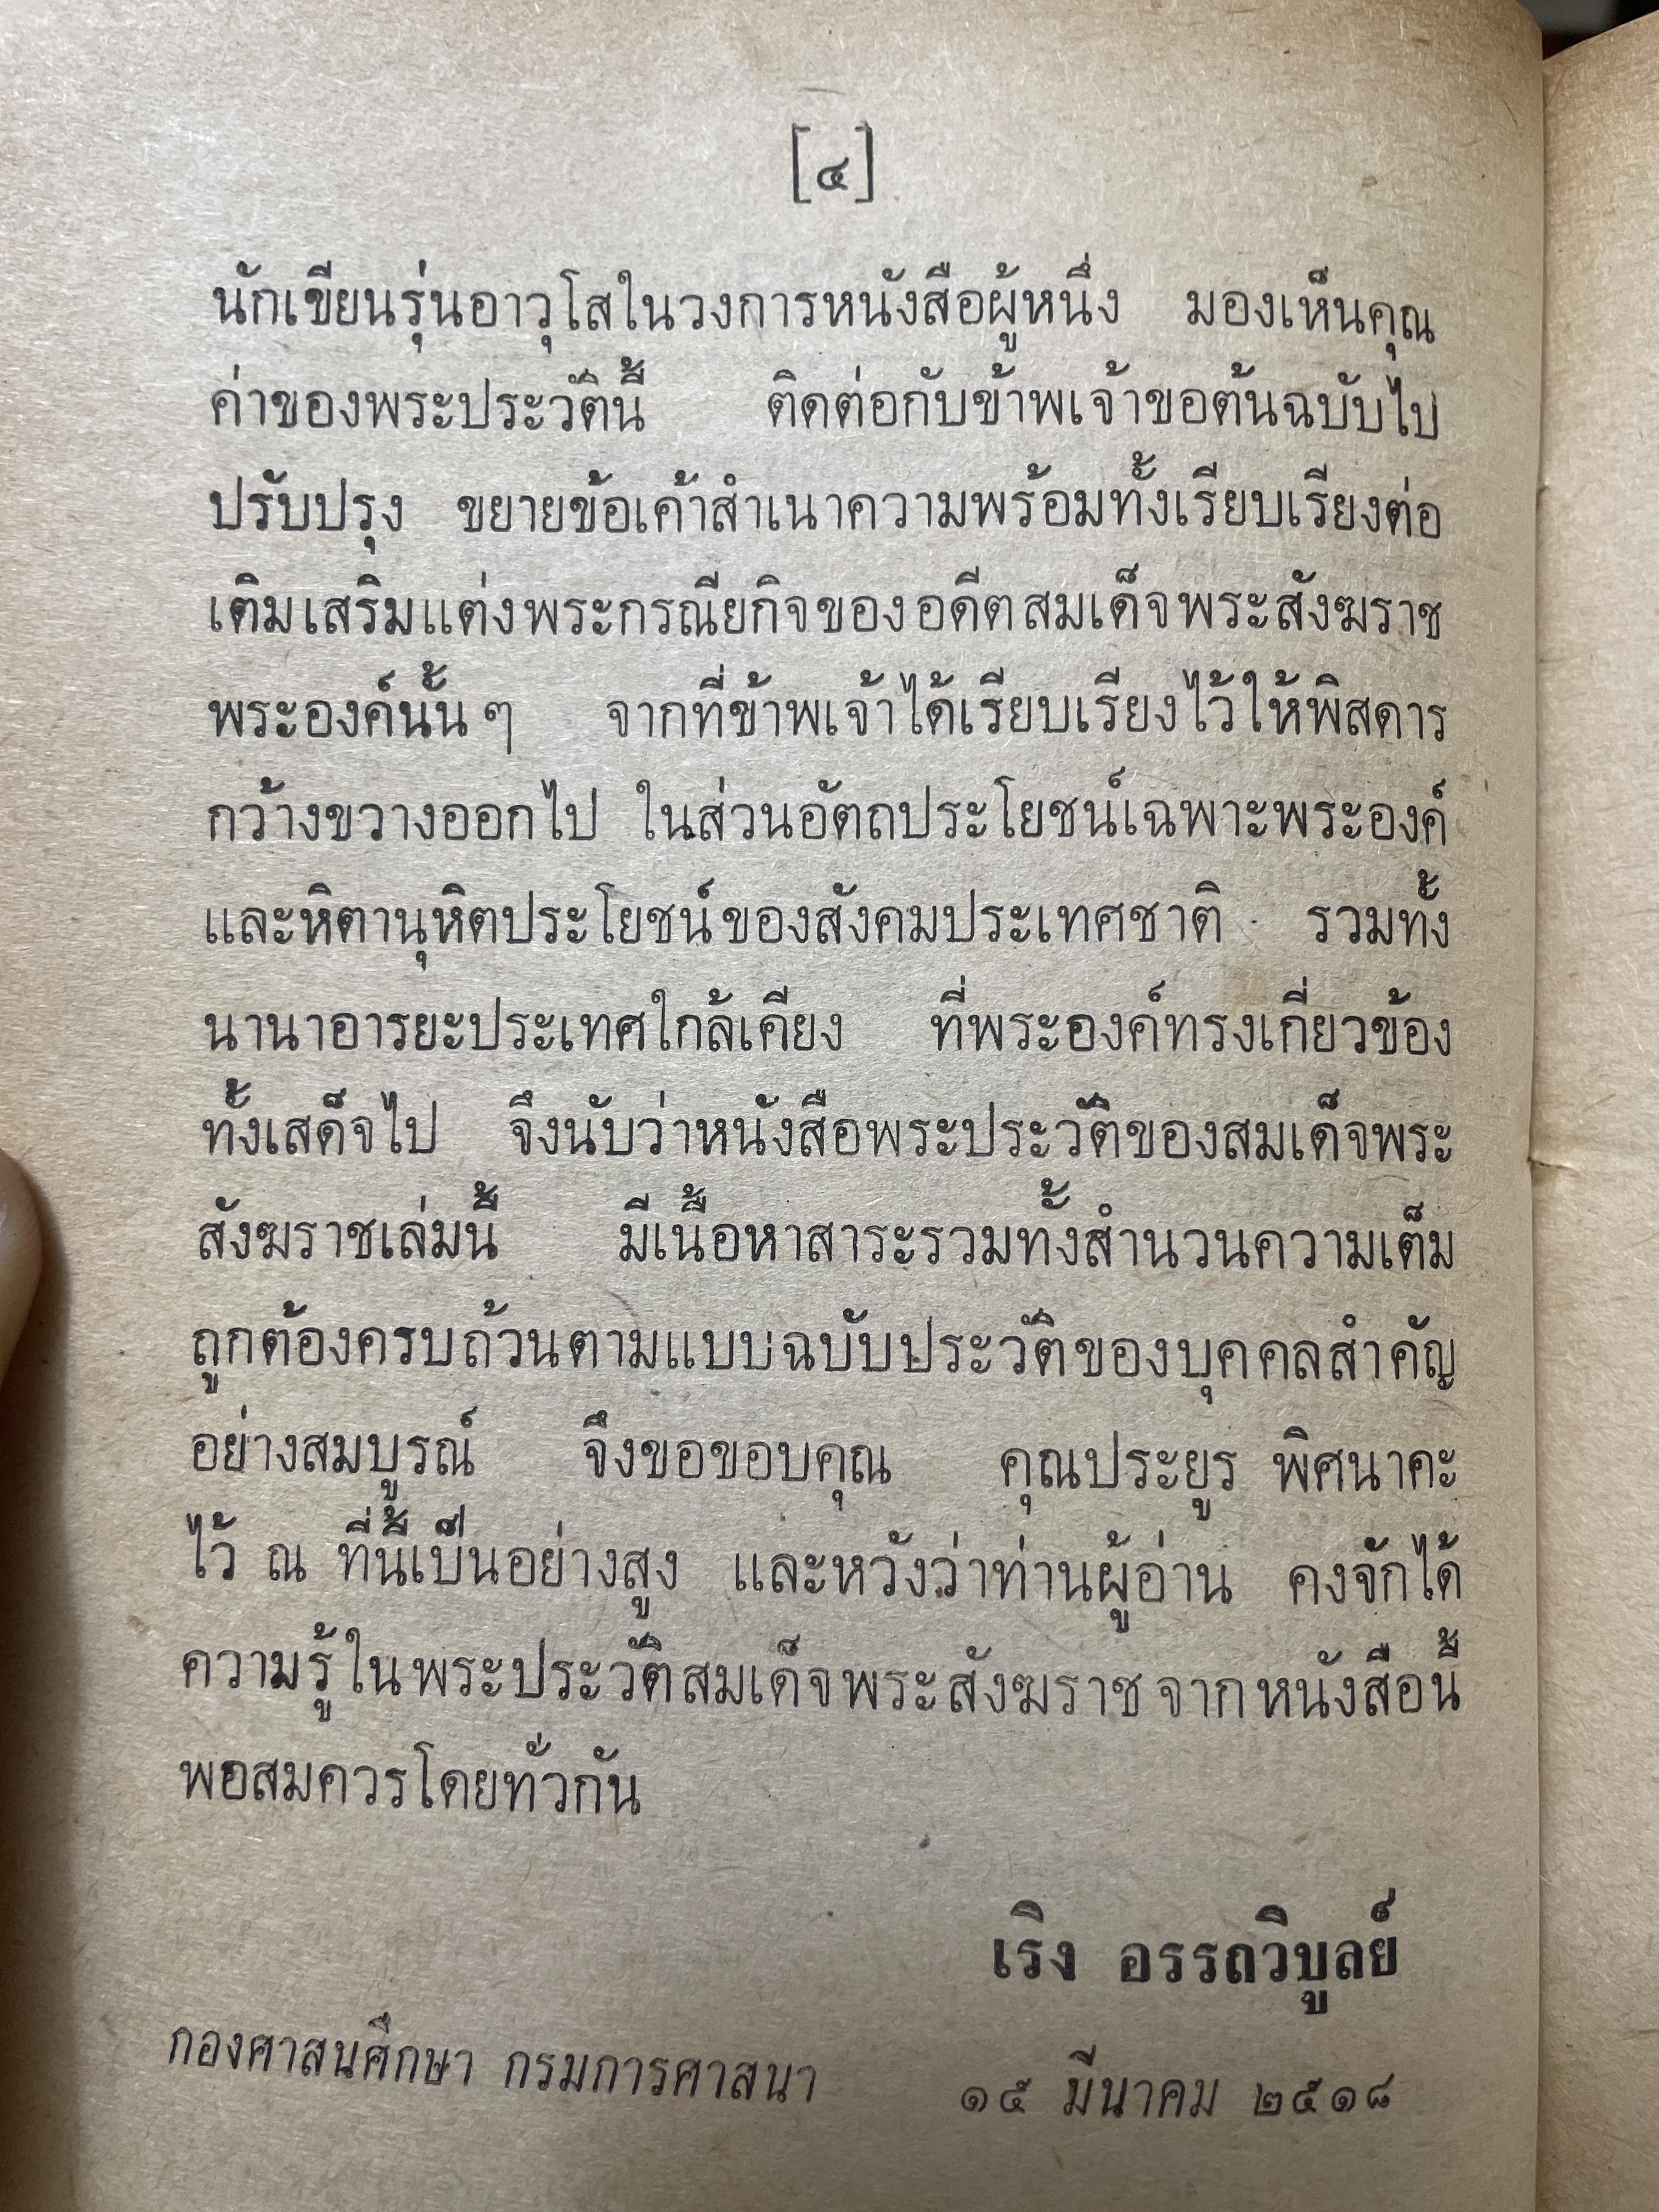 [๔]
นักเขียนรุ่นอาวุโสในวงการหนังสือผู้หนึ่ง มองเห็นคุณ
ค่าของพระประวัตินี้ ติดต่อกับข้าพเจ้าขอต้นฉบับไป
ปรับปรุง ขยายข้อเค้าสำเนาความพร้อมทั้งเรียบเรียงต่อ
เติมเสริมแต่งพระกรณียกิจของอดีตสมเด็จพระสังฆราช
พระองค์นั้น ๆ จากที่ข้าพเจ้าได้เรียบเรียงไว้ให้พิสดาร
กว้างขวางออกไป ในส่วนอัตถประโยชน์เฉพาะพระองค์
และหิตานุหิตประโยชน์ของสังคมประเทศชาติ รวมทั้ง
นานาอารยะประเทศใกล้เคียง ที่พระองค์ทรงเกี่ยวข้อง
ทั้งเสด็จไป จึงนับว่าหนังสือพระประวัติของสมเด็จพระ
สังฆราชเล่มนี้ มีเนื้อหาสาระรวมทั้งสำนวนความเต็ม
ถูกต้องครบถ้วนตามแบบฉบับประวัติของบุคคลสำคัญ
อย่างสมบูรณ์ จึงขอขอบคุณ คุณประยูร พิศนาคะ
ไว้ ณ ที่นี้เป็นอย่างสูง และหวังว่าท่านผู้อ่าน คงจักได้
ความรู้ในพระประวัติสมเด็จพระสังฆราชจากหนังสือนี้
พอสมควรโดยทั่วกัน
เริง อรรถวิบูลย์
กองศาสนศึกษา กรมการศาสนา
๑๕ มีนาคม ๒๕๑๘